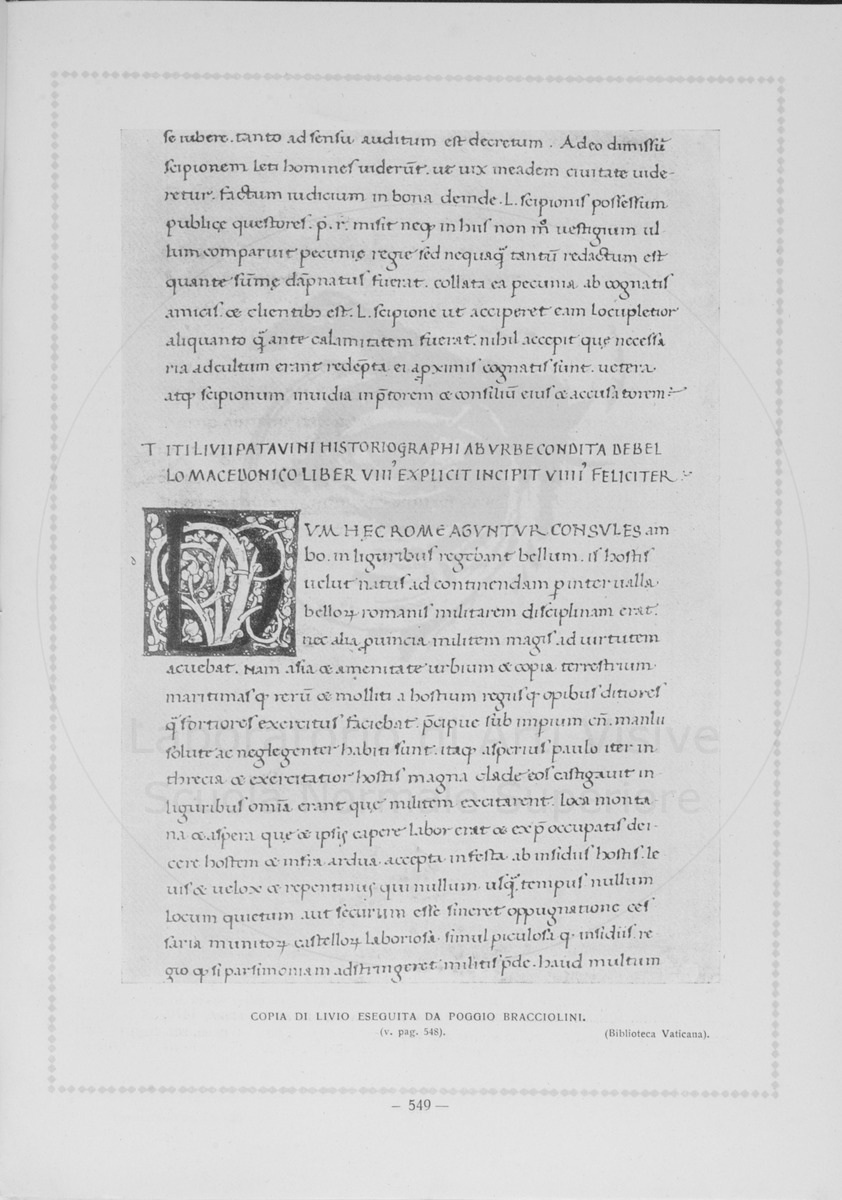 se iubere. tanto ad sensu auditum est decretum. Adeo dimissū
scipionem leti homines uiderūt. ut uix in eadem ciuitate uide-
retur. factum iudicium in bona deinde. L. scipionis possessum
publice questores. p̄. r̄. misit neq; in hiis non m̊ uestigium ul
lum comparuit pecunię regie sed nequaq̄ tantū redactum est
quante sūmę dāpnatus fuerat. collata ea pecunia ab cognatis
amicis. & clientibꝫ est. L. scipione ut acciperet eam locupletior
aliquanto q̄ ante calamitatem fuerat. nihil accepit que necessa
ria ad cultum erant redēpta ei a ꝓximis cognatis sunt. uetera.
atq; scipionum inuidia in p̄torem & consiliū eius & accusatorem:-
TITI LIVII PATAVINI HISTORIOGRAPHI AB VRBE CONDITA DE BEL
LO MACEDONICO LIBER VIII' EXPLICIT INCIPIT VIIII' FELICITER
DVM HEC ROMĘ AGVNTVR CONSVLES am
bo. in liguribus regebant bellum. is hostis
uelut natus ad continendam ꝑ interualla
belloꝝ romanis militarem disciplinam erat.
nec alia ꝓuincia militem magis ad uirtutem
acuebat. Nam asia & amenitate urbium & copia terrestrium
maritimasq; rerū & molliti a hostium regiisq; opibus ditiores
q̄ fortiores exercitus faciebat. p̄cipue sub imp̄ium cn̄. manlii
solute ac neglegenter habiti sunt. itaq; asperius paulo iter in
threcia & exercitatior hostis magna clade eos castigauit in
liguribus om̄ia erant que militem excitarent. loca monta
na & aspera que & ipsis capere labor erat & ex p̄occupatis dei-
cere hostem & infra ardua. accepta infesta ab insidiis hostis. le
uis & uelox & repentinus qui nullum usq̄. tempus nullum
locum quietum aut securum esse sineret oppugnatione ces
saria munitoꝝ castelloꝝ laboriosa. simul ꝑiculosaq; insidiis re
gioq; si parsimoniam adstringeret militis p̄de. haud multum
COPIA DI LIVIO ESEGUITA DA POGGIO BRACCIOLINI.
(v. pag. 548).
(Biblioteca Vaticana).
— 549 —
Laboratorio di Arti Visive
Scuola Normale Superiore